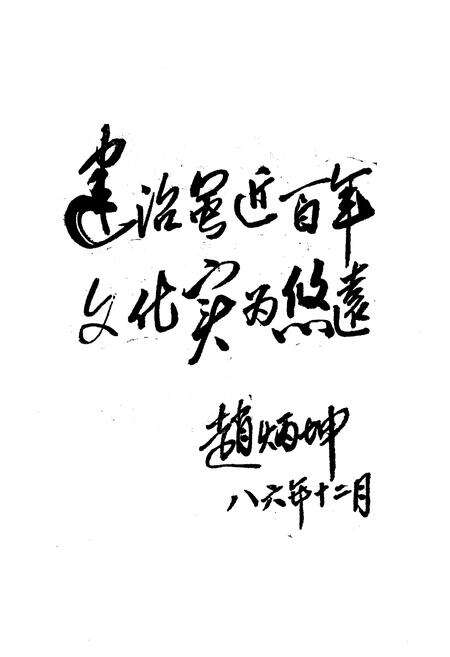 建治虽近百年
文化实为悠遠
趙炳坤
八六年十二月